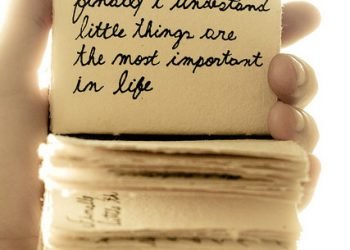 finally i understand
little things are
the most important
in life
finally